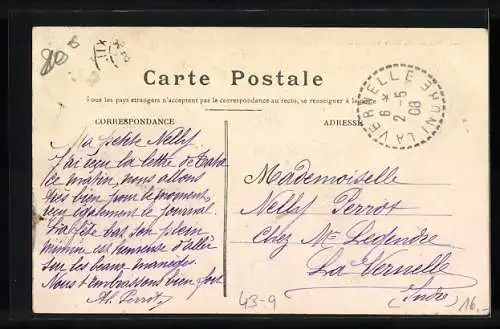 80
Carte Postale
Tous les pays étrangers n'acceptent pas la correspondance au recto, se renseigner à la poste
CORRESPONDANCE
ADRESSE
LA VERNELLE (INDRE)
6 *
2 - 5
08
Ma petite Nelly
J'ai reçu la lettre de
ce matin, nous allons
très bien pour le moment,
reçu également le journal.
La fête bat son plein
est heureuse d'aller
sur les beaux manèges.
Nous t'embrassons bien fort
Perrot
Mademoiselle
Nelly Perrot
Chez Mr Legendre
La Vernelle
(Indre)
43-9
16.-